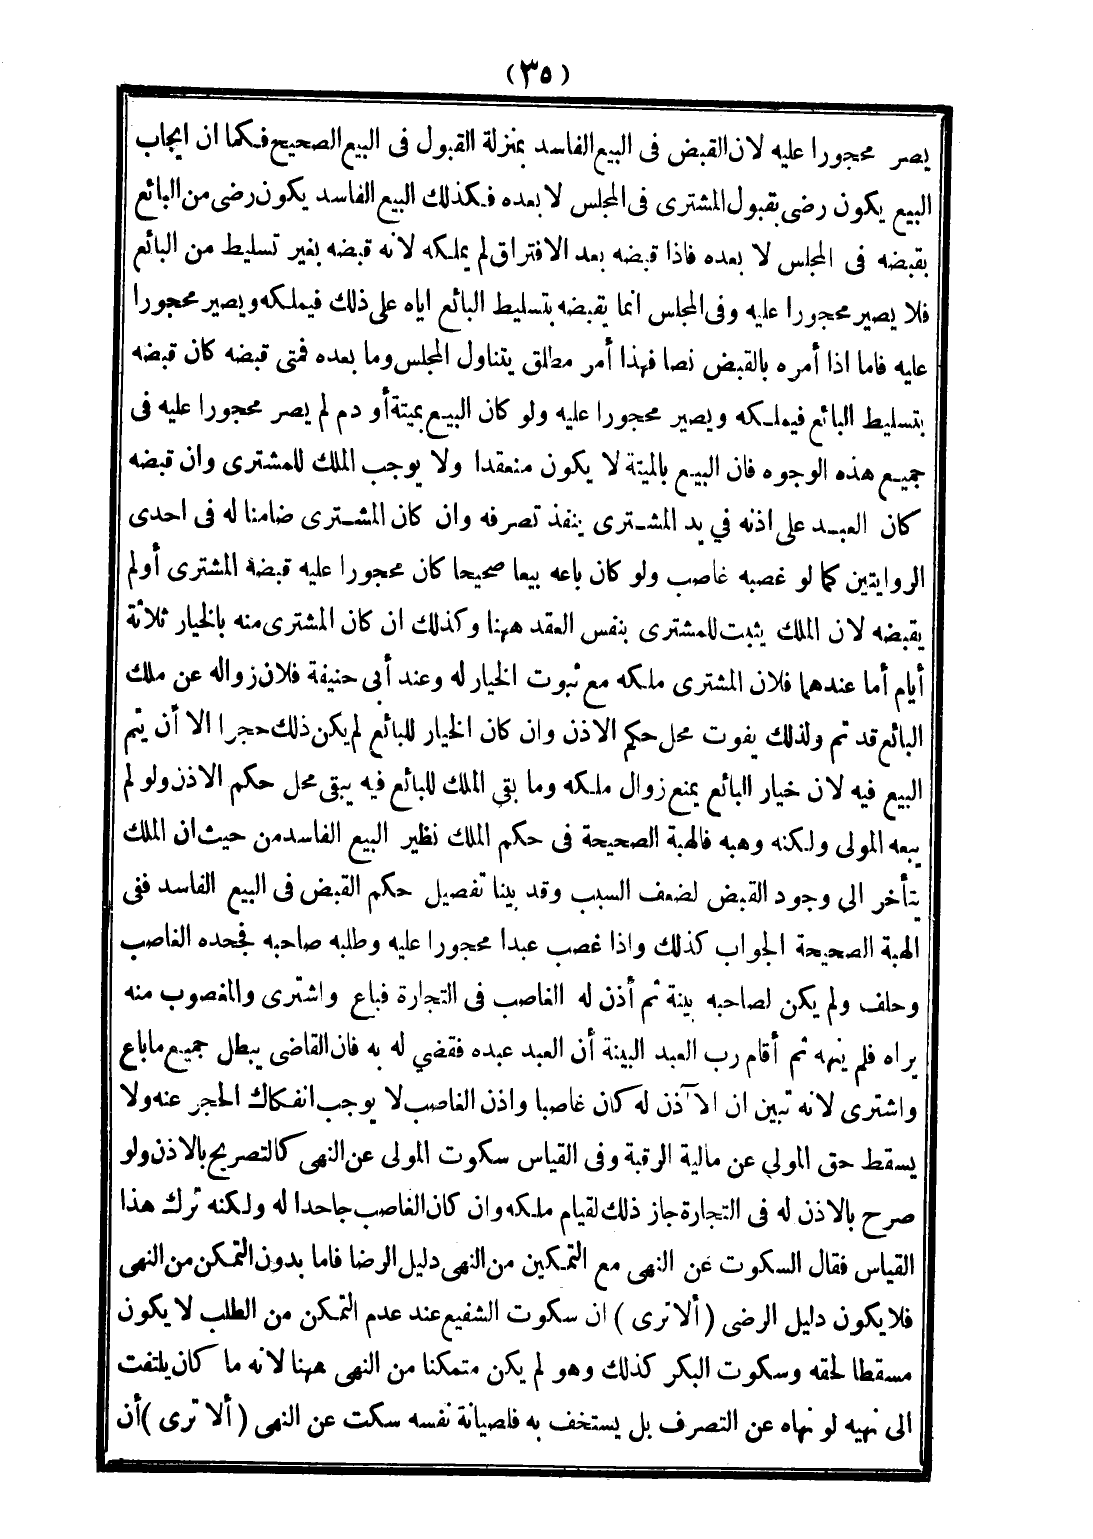 (٣٥)
يصر محجورا عليه لان القبض فى البيع الفاسد بمنزلة القبول فى البيع الصحيح فكما ان ايجاب
البيع يكون رضى بقبول المشترى فى المجلس لا بعده فكذلك البيع الفاسد يكون رضى من البائع
بقبضه فى المجلس لا بعده فاذا قبضه بعد الافتراق لم يملكه لانه قبضه بغير تسليط من البائع
فلا يصير محجورا عليه وفى المجلس انما يقبضه بتسليط البائع اياه على ذلك فيملكه ويصير محجورا
عليه فاما اذا أمره بالقبض نصا فهذا أمر مطلق يتناول المجلس وما بعده فمتى قبضه كان قبضه
بتسليط البائع فيملكه ويصير محجورا عليه ولو كان البيع بميتة أو دم لم يصر محجورا عليه فى
جميع هذه الوجوه فان البيع بالميتة لا يكون منعقدا ولا يوجب الملك للمشترى وان قبضه
كان العبد على اذنه في يد المشترى ينفذ تصرفه وان كان المشترى ضامنا له فى احدى
الروايتين كما لو غصبه غاصب ولو كان باعه بيعا صحيحا كان محجورا عليه قبضه المشترى أو لم
يقبضه لان الملك يثبت للمشترى بنفس العقد ههنا وكذلك ان كان المشترى منه بالخيار ثلاثة
أيام أما عندهما فلان المشترى ملكه مع ثبوت الخيار له وعند أبى حنيفة فلان زواله عن ملك
البائع قد تم ولذلك يفوت محل حكم الاذن وان كان الخيار للبائع لم يكن ذلك حجرا الا أن يتم
البيع فيه لان خيار البائع يمنع زوال ملكه وما بقي الملك للبائع فيه يبقى محل حكم الاذن ولو لم
يبعه المولى ولكنه وهبه فالهبة الصحيحة فى حكم الملك نظير البيع الفاسد من حيث ان الملك
يتأخر الي وجود القبض لضعف السبب وقد بينا تفصيل حكم القبض فى البيع الفاسد ففى
الهبة الصحيحة الجواب كذلك واذا غصب عبدا محجورا عليه وطلبه صاحبه فجحده الغاصب
وحلف ولم يكن لصاحبه بينة ثم أذن له الغاصب فى التجارة فباع واشترى والمغصوب منه
يراه فلم ينهه ثم أقام رب العبد البينة أن العبد عبده فقضي له به فان القاضى يبطل جميع ما باع
واشترى لانه تبين ان الآذن له كان غاصبا واذن الغاصب لا يوجب انفكاك الحجر عنه ولا
يسقط حق المولي عن مالية الرقبة وفى القياس سكوت المولى عن النهى كالتصريح بالاذن ولو
صرح بالاذن له فى التجارة جاز ذلك لقيام ملكه وان كان الغاصب جاحدا له ولكنه ترك هذا
القياس فقال السكوت عن النهى مع التمكين من النهى دليل الرضا فاما بدون التمكن من النهى
فلا يكون دليل الرضى ( ألا ترى ) ان سكوت الشفيع عند عدم التمكن من الطلب لا يكون
مسقطا لحقه وسكوت البكر كذلك وهو لم يكن متمكنا من النهى ههنا لانه ما كان يلتفت
الى نهيه لو نهاه عن التصرف بل يستخف به فلصيانة نفسه سكت عن النهى ( ألا ترى ) أن